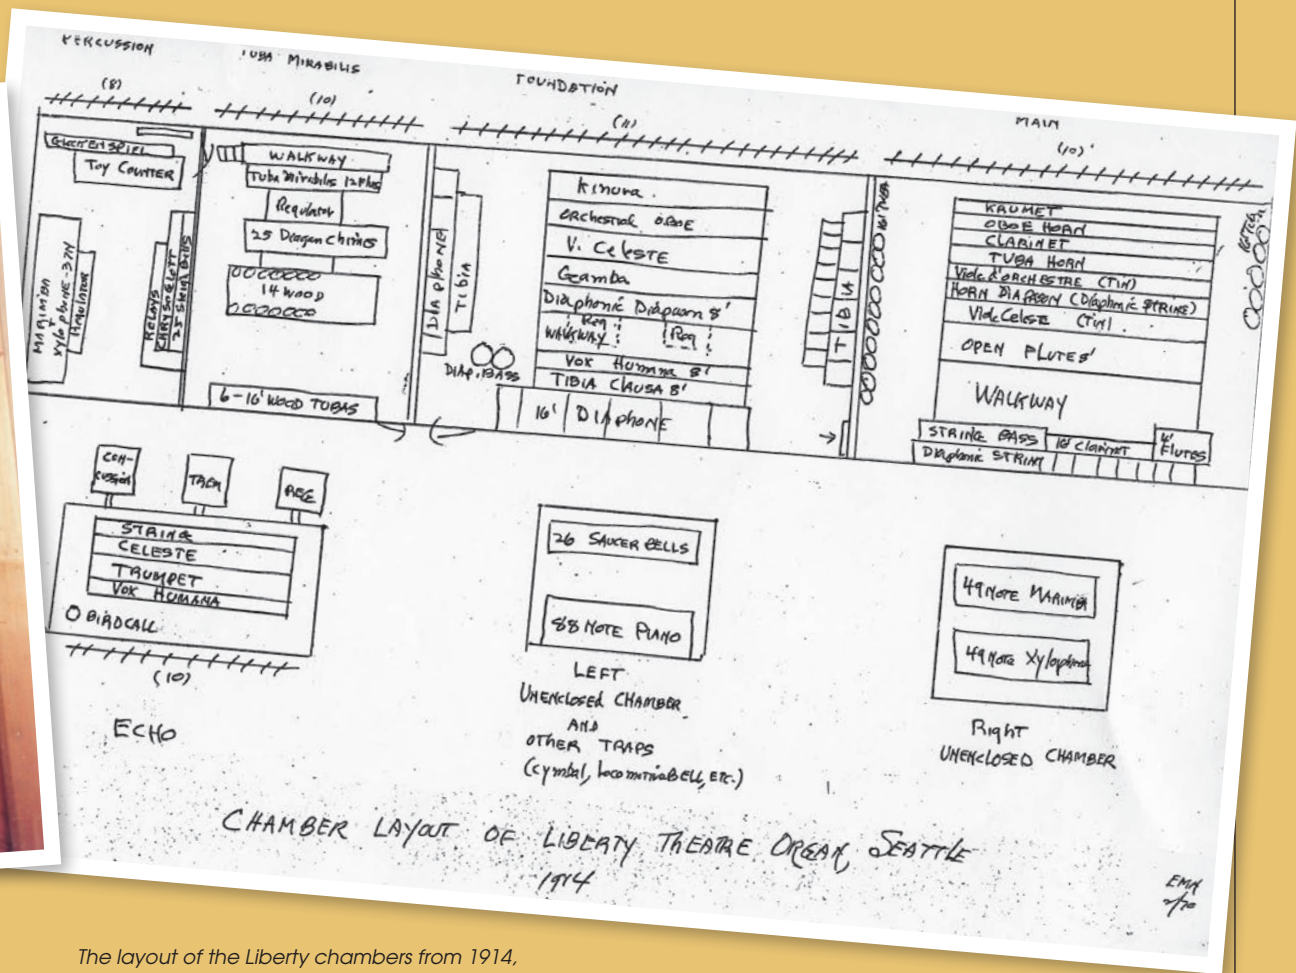 PERCUSSION
(8)
GLOCKENSPIEL
TOY COUNTER
MARIMBA
XYLOPHONE-37N
REGULATOR
RELAYS
25 Sleigh Bells
TUBA MIRABILIS
(10)
WALKWAY
Tuba Mirabilis 12 Pipes
Regulator
25 Deagan Chimes
14 WOOD
6-16' WOOD TUBAS
FOUNDATION
(11)
DIAPHONE
TIBIA
DIAP. BASS
Kinura
ORCHESTRAL OBOE
V. CELESTE
Gamba
Diaphonic Diapason 8'
Reg
WALKWAY
Reg
VOX HUMANA 8'
TIBIA CLAUSA 8'
16' DIAPHONE
TIBIA
MAIN
(10)
16' TUBA
KRUMET
OBOE HORN
CLARINET
TUBA HORN
Viole d'ORCHESTRE (TIN)
HORN DIAPASON (Diaphonic STRING)
Viole Celeste (TIN)
OPEN FLUTE 8'
WALKWAY
STRING BASS
16' Clarinet
4' FLUTES
Diaphonic STRING
CON-
CUSSION
TREM
REG
STRING
CELESTE
TRUMPET
VOX HUMANA
BIRDCALL
(10)
ECHO
26 SAUCER BELLS
88 NOTE PIANO
LEFT
UNENCLOSED CHAMBER
AND
OTHER TRAPS
(cymbal, Locomotive BELL, ETC.)
49 NOTE MARIMBA
49 Note Xylophone
Right
UNENCLOSED CHAMBER
CHAMBER LAYOUT OF LIBERTY THEATRE ORGAN, SEATTLE
1914
The layout of the Liberty chambers from 1914,